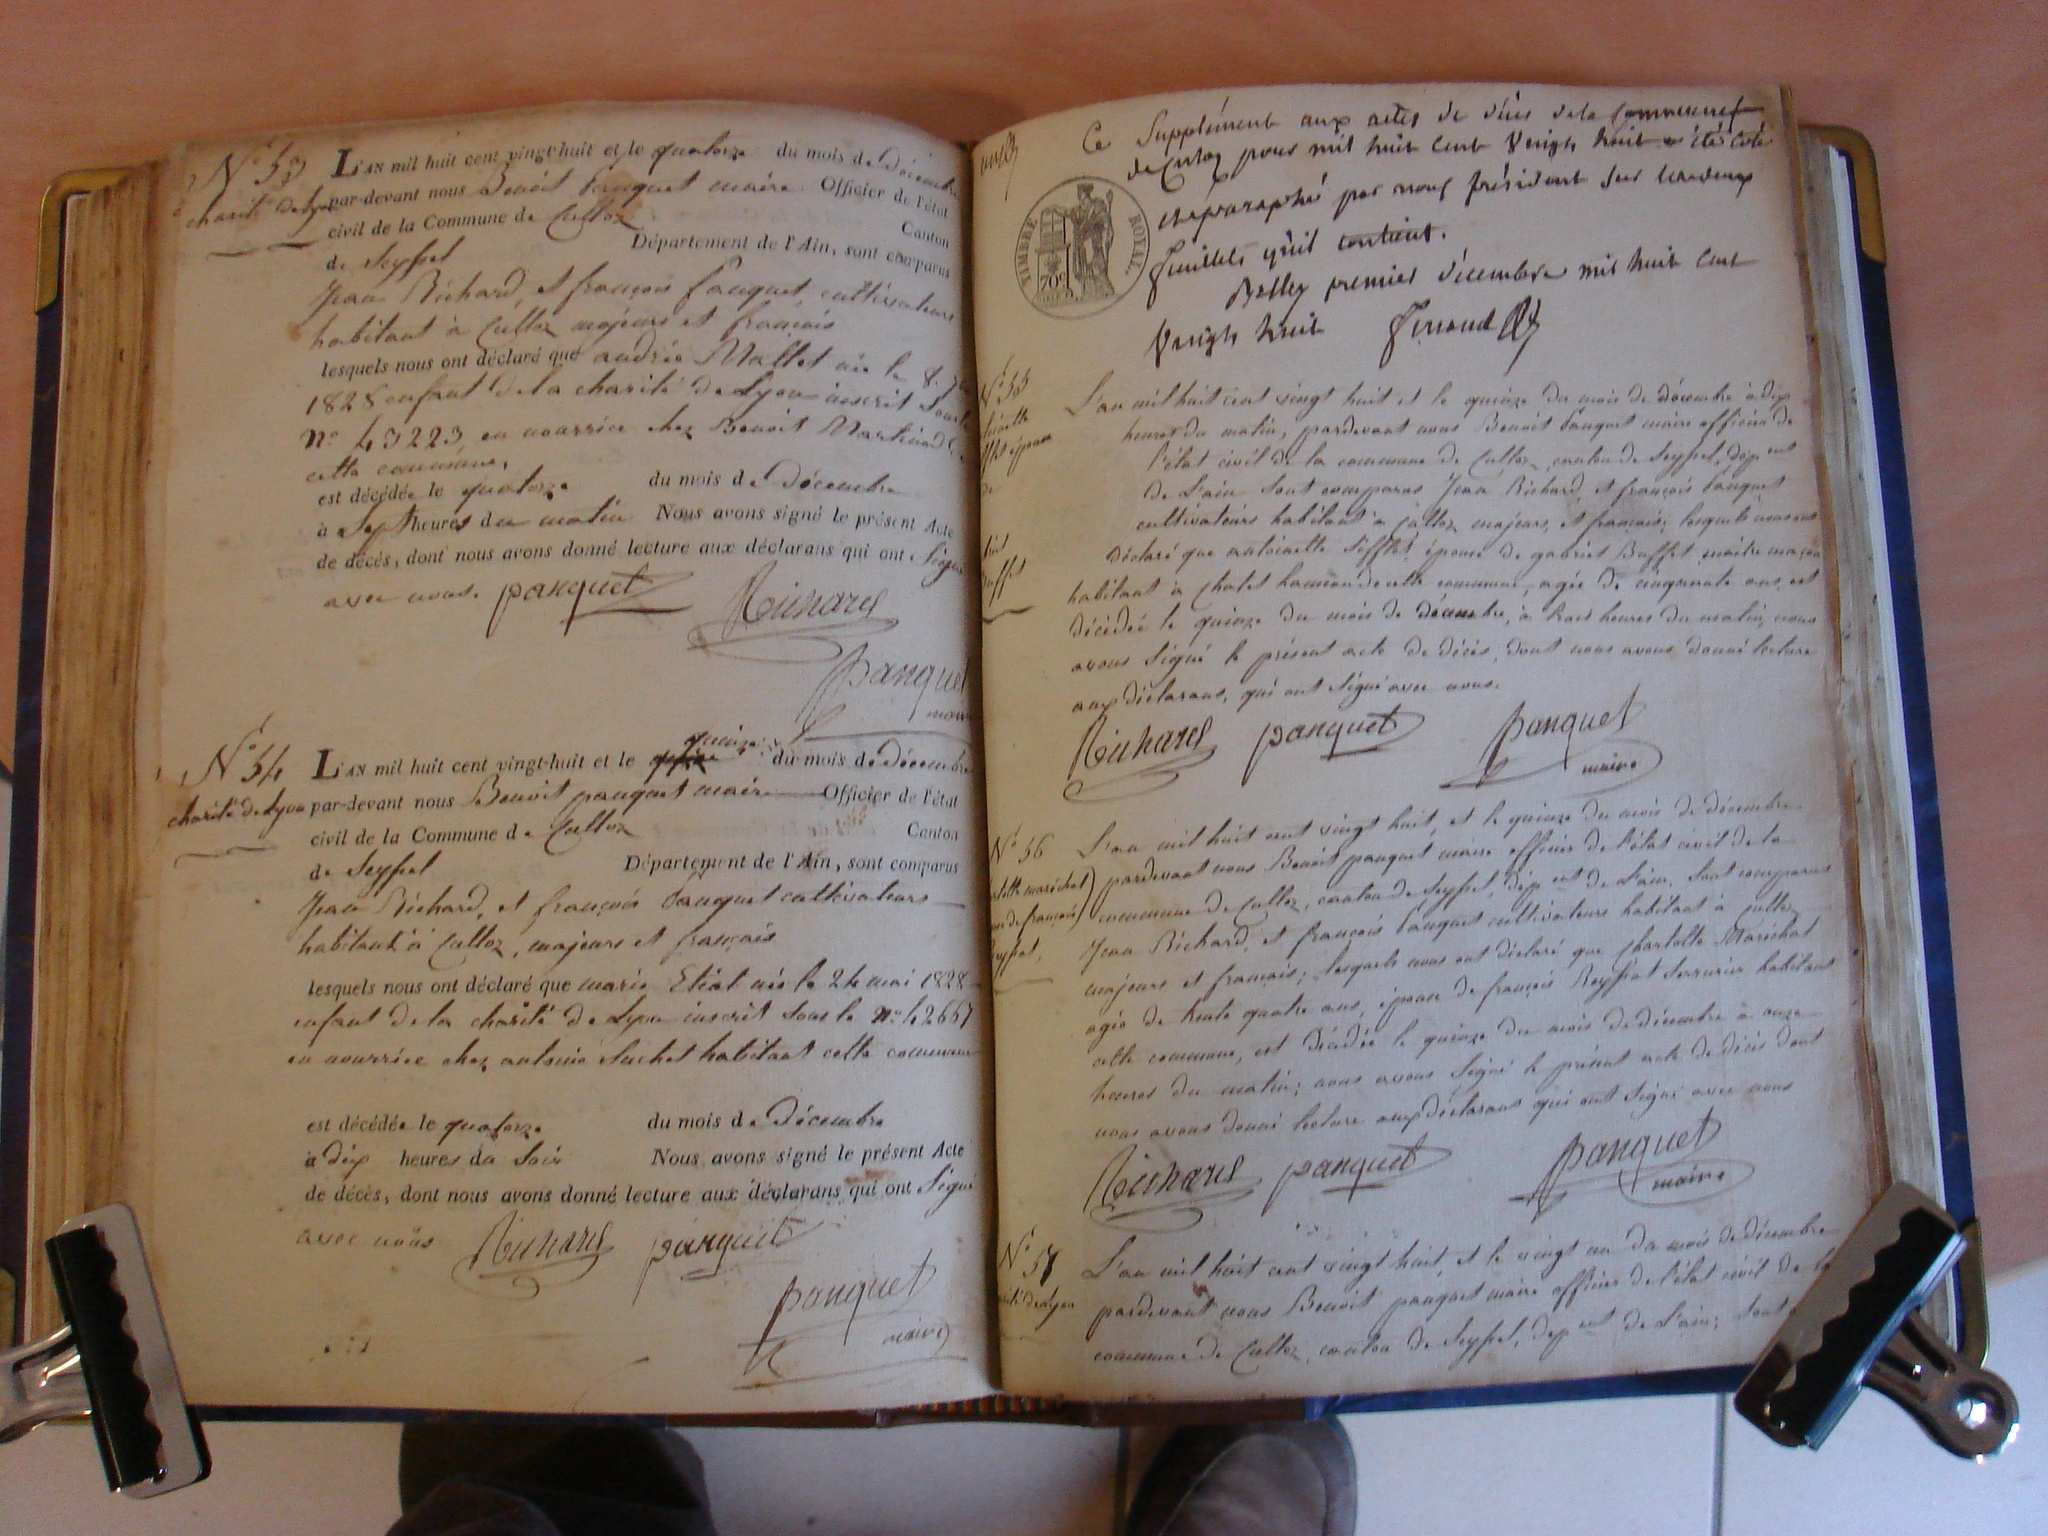 N° 53
charité de Lyon
L'AN mil huit cent vingt-huit et le quatorze du mois de Décembre
par-devant nous Benoit panquet maire Officier de l'état
civil de la Commune de Culloz Canton
de Seyssel Département de l'Ain, sont comparus
Jean Richard, et françois panquet, cultivateurs
habitant à Culloz majeurs et français
lesquels nous ont déclaré que andrée Mallet née le 8.
1828 enfant de la charité de Lyon inscrit sous le
n° 43223 en nourrice chez Benoit Martinod
cette commune,
est décédée le quatorze du mois de Décembre
à Sept heures du matin Nous avons signé le présent Acte
de décès, dont nous avons donné lecture aux déclarans qui ont Signé
avec nous. panquet Richard
panquet
maire
N° 54
charité de Lyon
quinze
L'AN mil huit cent vingt-huit et le du mois de Décembre
par-devant nous Benoit panquet maire Officier de l'état
civil de la Commune de Culloz Canton
de Seyssel Département de l'Ain, sont comparus
Jean Richard, et françois panquet cultivateurs
habitant à Culloz, majeurs et français
lesquels nous ont déclaré que marie Etiat née le 24 mai 1828
enfant de la charité de Lyon inscrit sous le n° 42667
en nourrice chez antoine Suchet habitant cette commune
est décédée le quatorze du mois de Décembre
à dix heures du Soir Nous avons signé le présent Acte
de décès, dont nous avons donné lecture aux déclarans qui ont Signé
avec nous Richard panquet
panquet
maire
Ce Supplément aux actes de décès de la Commune
de Culoz pour mil huit cent Vingt huit a été coté
et paraphé par nous président sur les deux
feuillets qu'il contient.
Belley premier décembre mil huit cent
Vingt huit
TIMBRE ROYAL.
70c
N° 55
L'an mil huit cent vingt huit et le quinze du mois de décembre à dix
heures du matin, pardevant nous Benoit panquet maire officier de
l'état civil de la commune de Culloz, canton de Seyssel, dép ent
de l'ain sont comparus Jean Richard, et françois panquet
cultivateurs habitant à Culloz majeurs, et français; lesquels nous ont
Déclaré que antoinette Sifflet, épouse de gabriel Buffet, maitre maçon
habitant à chatel hameau de cette commune, agée de cinquante ans, est
décédée le quinze du mois de décembre, à trois heures du matin, nous
avons signé le présent acte de décès, dont nous avons donné lecture
aux déclarans, qui ont signé avec nous.
Richard panquet panquet
maire
N° 56
L'an mil huit cent vingt huit, et le quinze du mois de décembre
pardevant nous Benoit panquet maire officier de l'état civil de la
commune de Culloz, canton de Seyssel, dép ent de l'ain. Sont comparus
Jean Richard, et françois panquet cultivateurs habitant à Culloz
majeurs et français; lesquels nous ont déclaré que Charlotte Maréchal
agée de trente quatre ans, épouse de françois Reyssiat Serrurier habitant
cette commune, est Décédée le quinze du mois de décembre à onze
heures du matin; nous avons Signé le présent acte de décès dont
nous avons donné lecture aux déclarans qui ont Signé avec nous
Richard panquet panquet
maire
N° 57
de Lyon
L'an mil huit cent vingt huit, et le vingt un du mois de décembre
pardevant nous Benoit panquet maire officier de l'état civil de la
commune de Culloz, canton de Seyssel, dép ent de l'ain; sont